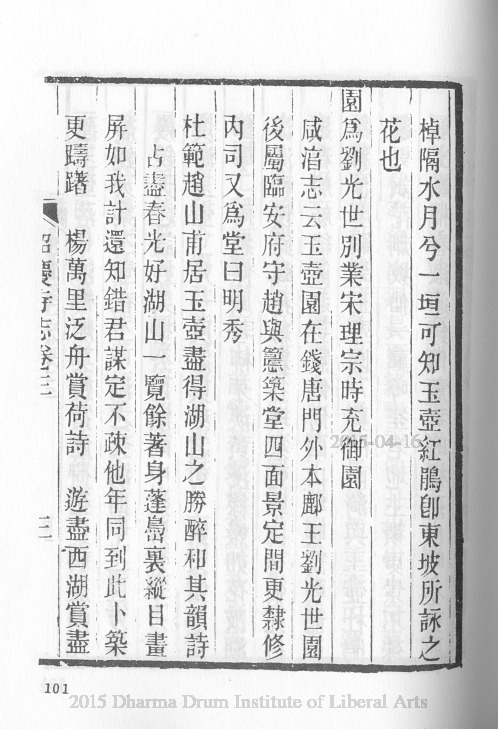 棹隔水月兮一垣可知玉壺紅鵑卽東坡所詠之
花也
園爲劉光世別業宋理宗時充御園
咸淳志云玉壺園在錢唐門外本鄜王劉光世園
後屬臨安府守趙與𥲅築堂四面景定間更隸修
內司又爲堂曰明秀
杜範趙山甫居玉壺盡得湖山之勝醉和其韻詩
占盡春光好湖山一覽餘著身蓬島裏縱目畫
屏如我計還知錯君謀定不疎他年同到此卜築
更躊躇 楊萬里泛舟賞荷詩 遊盡西湖賞盡
昭慶寺志卷三
三
101
2015-04-16
2015 Dharma Drum Institute of Liberal Arts